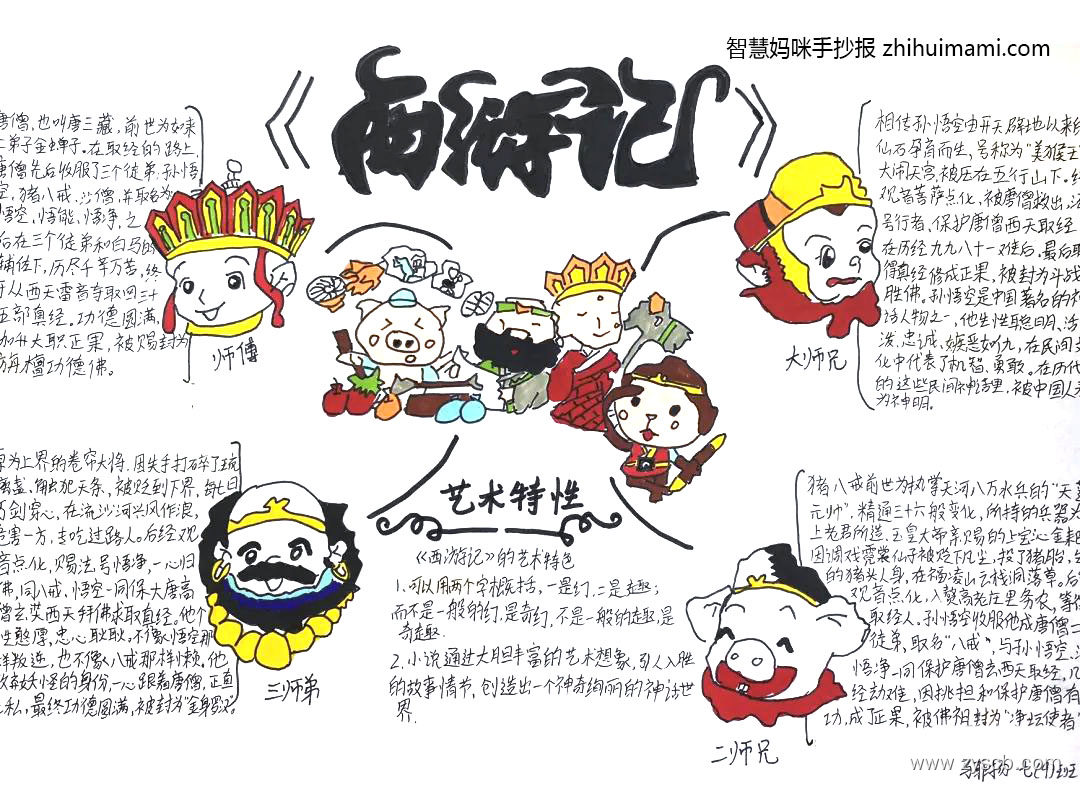 智慧妈咪手抄报 zhihuimami.com
《西游记》
唐僧,也叫唐三藏,前世为如来
二弟子金蝉子。在取经的路上,
唐僧先后收服了三个徒弟,孙悟
空,猪八戒,沙僧,并取名为
悟空,悟能,悟净,之
后在三个徒弟和白马的
辅佐下,历尽千辛万苦,终
于从西天雷音寺取回三十
五部真经。功德圆满,
加升大职正果,被赐封为
旃檀功德佛。
师傅
相传孙悟空由开天辟地以来的
仙石孕育而生,号称为“美猴王
大闹天宫,被压在五行山下。经
观音菩萨点化,被唐僧救出,法
号行者,保护唐僧西天取经
在历经九九八十一难后,最后取
得真经修成正果,被封为斗战
胜佛。孙悟空是中国著名的神
话人物之一,他生性聪明、活
泼,忠诚,嫉恶如仇,在民间文
化中代表了机智、勇敢。在历代
的这些民间神话里,被中国人
为神明。
大师兄
原为上界的卷帘大将,因失手打碎了琉
璃盏,触犯天条,被贬到下界,每七日
万剑穿心,在流沙河兴风作浪,
危害一方,专吃过路人。后经观
音点化,赐法号悟净,一心归
佛,同八戒,悟空一同保大唐高
僧去西天拜佛求取真经。他个
性憨厚,忠心耿耿,不像悟空那
样叛逆,也不像八戒那样懒。他
妖怪的身份,一心跟着唐僧,正直
无私,最终功德圆满,被封为“金身罗汉”。
三师弟
艺术特性
《西游记》的艺术特色
1.可以用两个字概括,一是幻,二是趣;
而不是一般的幻,是奇幻,不是一般的趣,是
奇趣.
2.小说通过大胆丰富的艺术想象,引人入胜
的故事情节,创造出一个神奇绚丽的神话世
界.
猪八戒前世为执掌天河八万水兵的“天蓬
元帅”,精通三十六般变化,所持的兵器为
上老君所造、玉皇大帝亲赐的上宝沁金耙
因调戏霓裳仙子被贬下凡尘,投了猪胎,生
的猪头人身,在福凌山云栈洞落草。后
观音点化,入赘高老庄里务农,等候
取经人。孙悟空收服他成唐僧二
徒弟,取名“八戒”,与孙悟空、沙
悟净一同保护唐僧去西天取经,几
经劫难,因挑担和保护唐僧有
功,成了正果,被佛祖封为“净坛使者”
二师兄
七(4)班